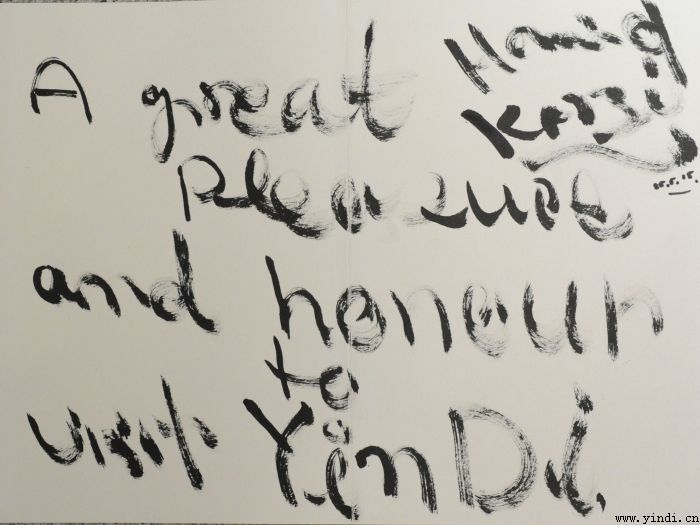 A great
pleasure
and honour
to
visit YinDi.
Hamid
Karzai
15.5.15.
www.yindi.cn